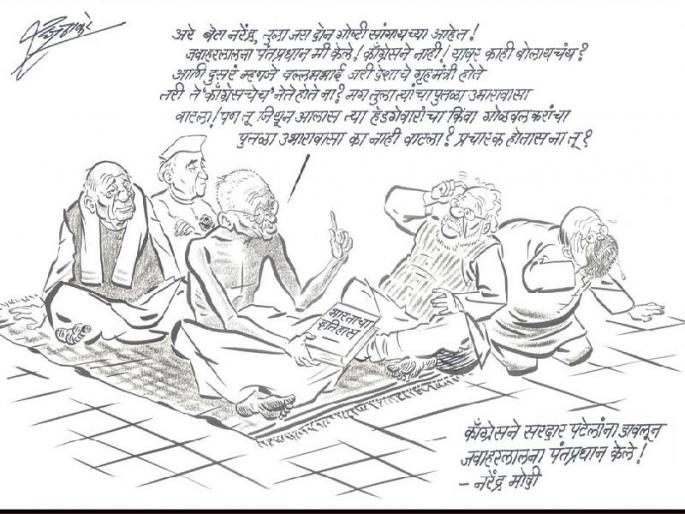 अरे बेटा नरेंद्र, तुला जरा दोन गोष्टी सांगायच्या आहेत!
जवाहरलालना पंतप्रधान मी केले! काँग्रेसने नाही! यावर काही बोलायचंय?
आणि दुसरं म्हणजे वल्लभभाई जरी देशाचे गृहमंत्री होते
तरी ते 'काँग्रेसचेच' नेते होते ना? मग तुला त्यांचा पुतळा उभारावासा
वाटला! पण तू जिथून आलास त्या हेडगेवारांचा किंवा गोळवलकरांचा
पुतळा उभारावासा का नाही वाटला? प्रचारक होतास ना तू?
भारताचा
इतिहास
काँग्रेसने सरदार पटेलांना डावलून
जवाहरलालना पंतप्रधान केले!
- नरेंद्र मोदी